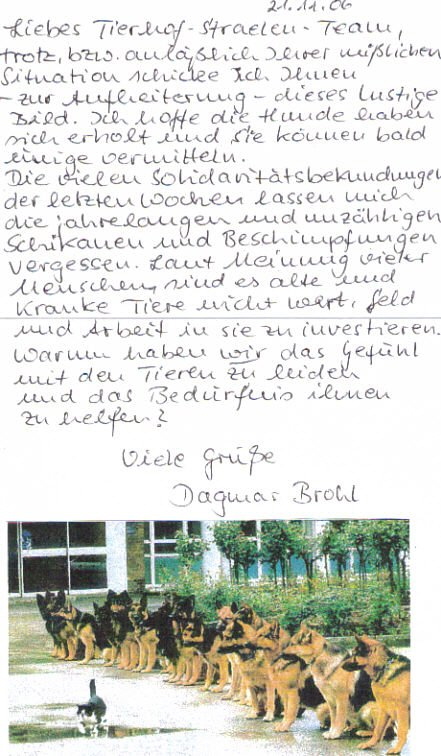 21.11.06
Liebes Tierhof-Straelen-Team,
trotz, bzw. anläßlich Ihrer mißlichen
Situation schicke ich Ihnen
- zur Aufheiterung - dieses lustige
Bild. Ich hoffe die Hunde haben
sich erholt und Sie können bald
einige vermitteln.
Die vielen Solidaritätsbekundungen
der letzten Wochen lassen mich
die jahrelangen und unzähligen
Schikanen und Beschimpfungen
vergessen. Laut Meinung vieler
Menschen, sind es alte und
kranke Tiere nicht wert, Geld
und Arbeit in sie zu investieren.
Warum haben wir das Gefühl
mit den Tieren zu leiden
und das Bedürfnis ihnen
zu helfen?
Viele Grüße
Dagmar Brohl